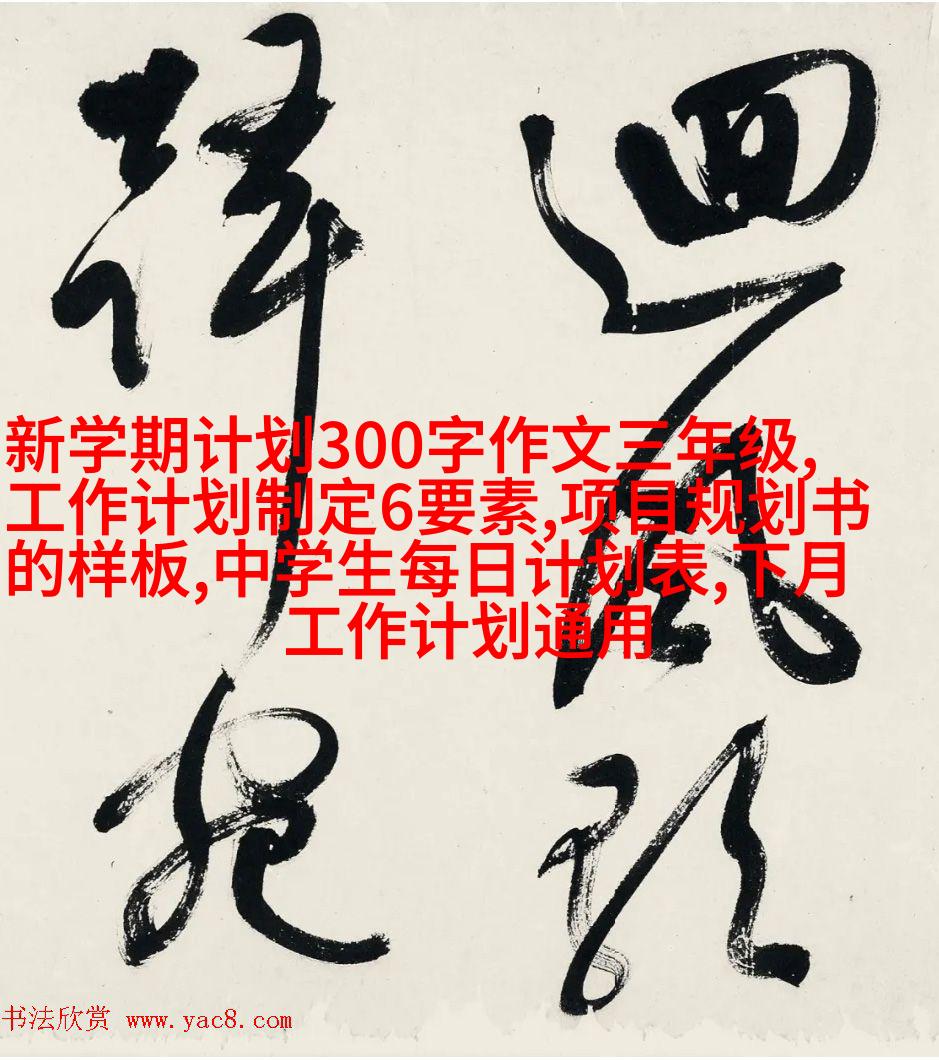 迴風
新学期计划300字作文三年级,
工作计划制定6要素,项目规划书
的样板,中学生每日计划表,下月
工作计划通用
书法欣赏 www.yac8.com